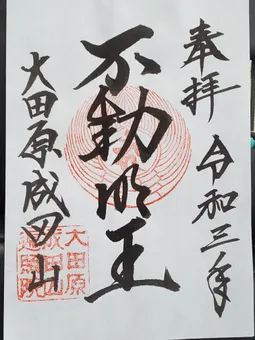 奉拝
令和三年
不動明王
大田原成田山
大田原
成田山
遍照院